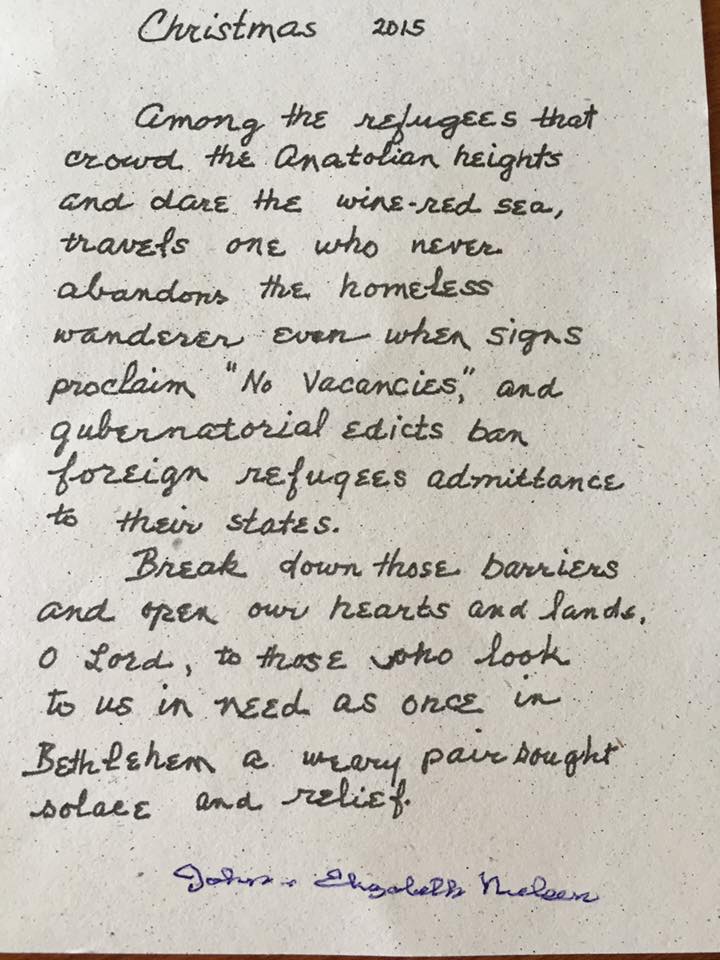 Christmas 2015
Among the refugees that
crowd the Anatolian heights
and dare the wine-red sea,
travels one who never
abandons the homeless
wanderer even when signs
proclaim "No Vacancies," and
gubernatorial edicts ban
foreign refugees admittance
to their states.
Break down those barriers
and open our hearts and lands,
O Lord, to those who look
to us in need as once in
Bethlehem a weary pair sought
solace and relief.
John + Elizabeth Nielsen